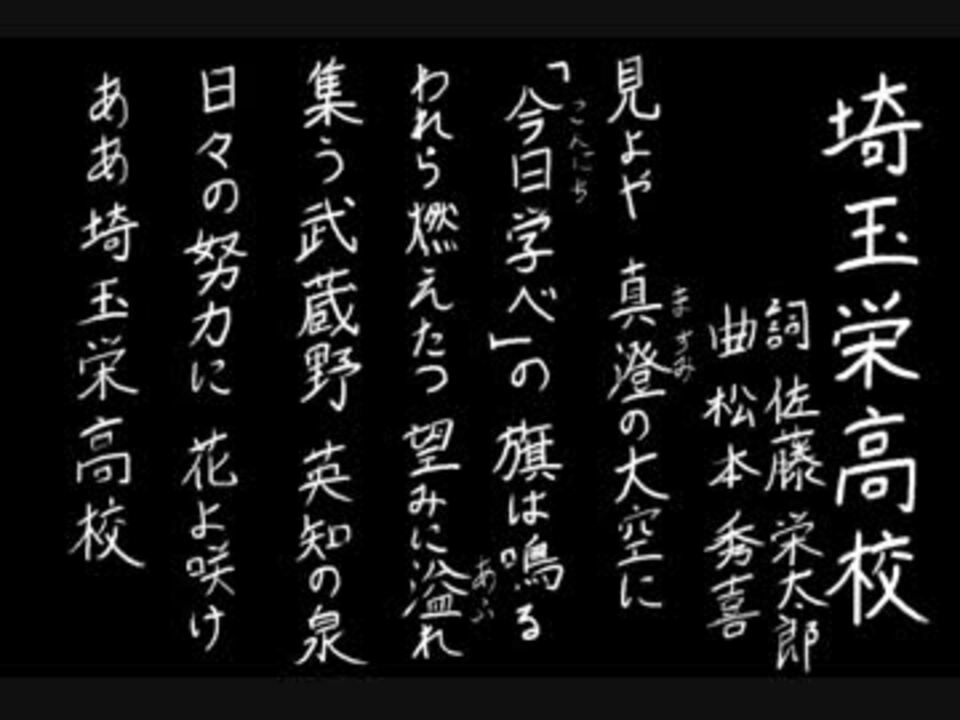 埼玉栄高校
詞 佐藤 栄太郎
曲 松本 秀喜
見よや 真澄の大空に
ますみ
「今日学べ」の 旗は鳴る
こんにち
われら燃えたつ 望みに溢れ
あふ
集う武蔵野 英知の泉
日々の努力に 花よ咲け
ああ埼玉栄高校